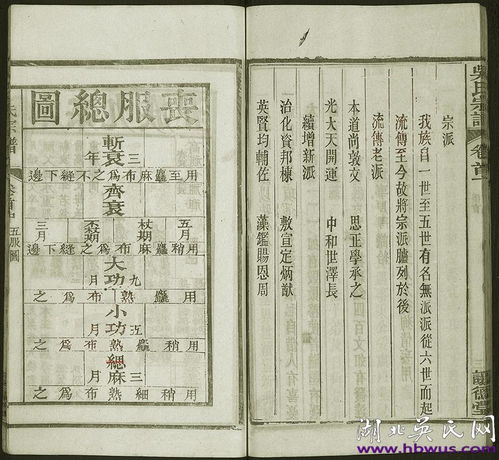 吳氏宗譜 卷首
宗派
我族自一世至五世有名無派派從六世而起
流傳至今故將宗派臚列於後
流傳老派
本道尚敦文 思正學承之
光大天開運 中和世澤長
續增新派
治化資邦棟 敷宣定炳猷
英賢均輔佐 藻鑑賜恩周
喪服總圖
斬衰三年
用至麤麻布為之不縫下邊
齊衰
五月 杖期 不杖期 三月
用稍麤麻布為之縫下邊
大功九月
用麤熟布為之
小功五月
用稍麤熟布為之
緦麻三月
用稍細熟布為之
五服圖
湖北吴氏网
www.hbwus.com